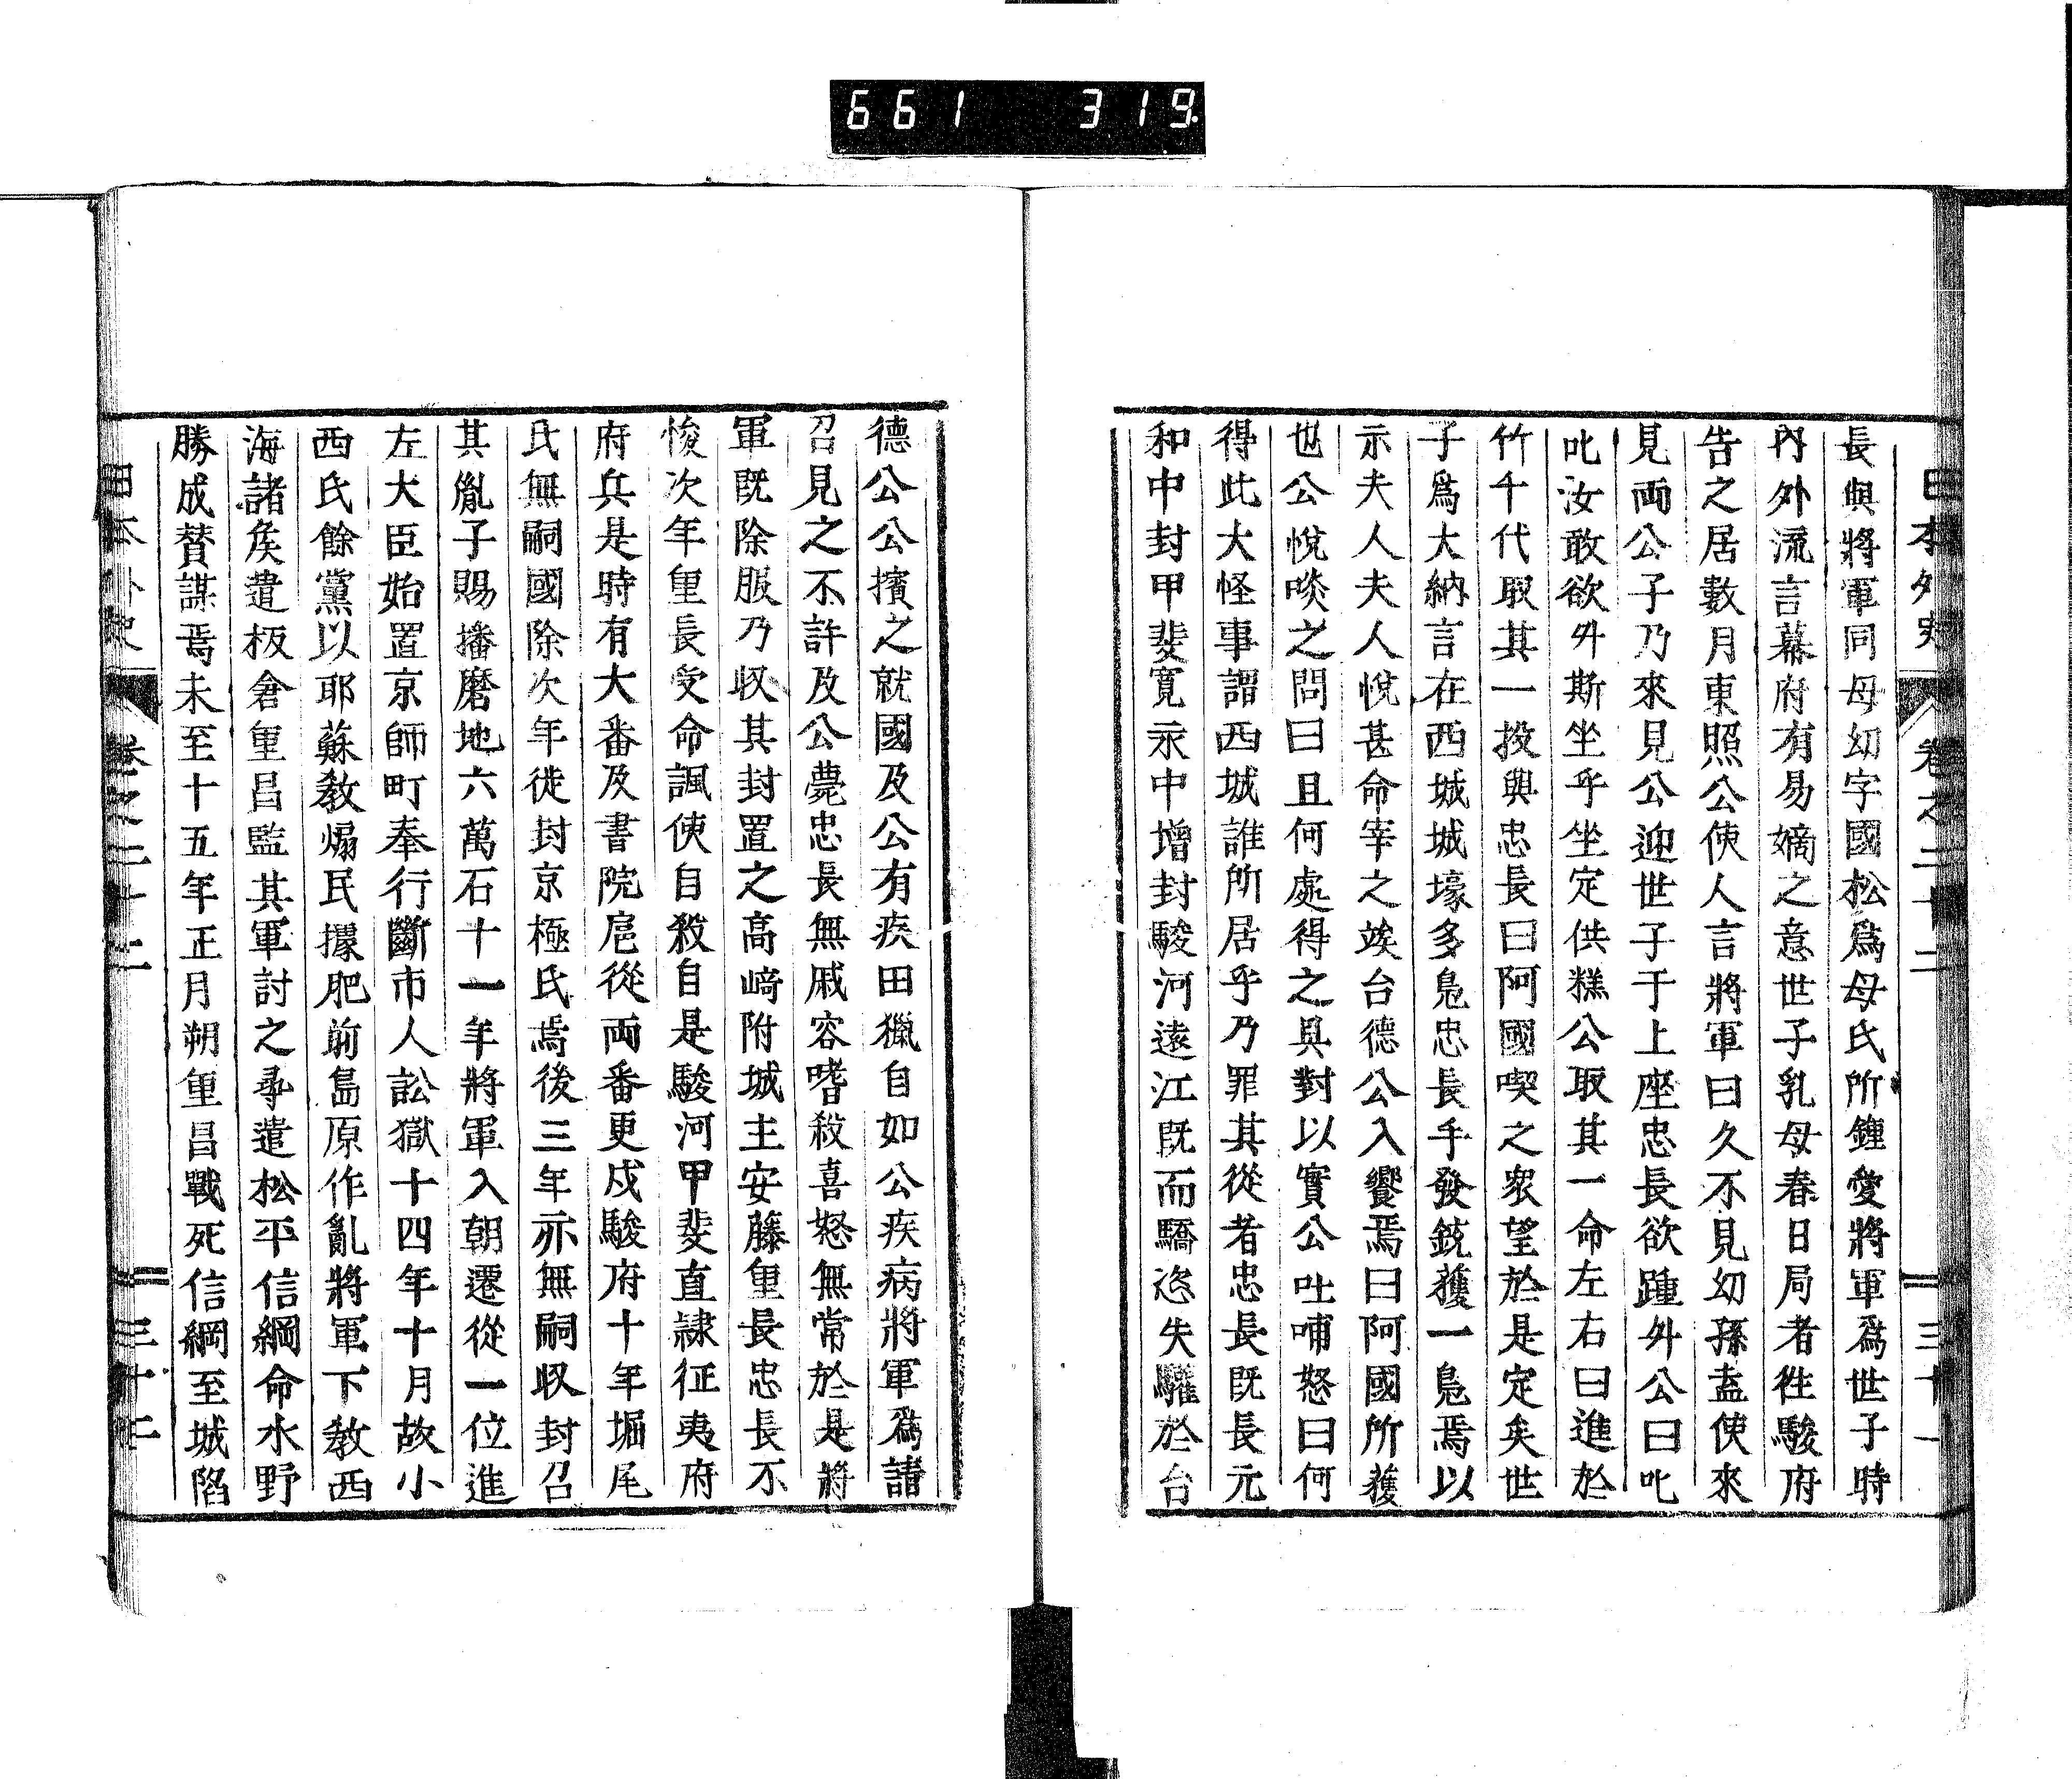 661 319
日本外史 卷之二十二 三十一
長與將軍同母幼字國松爲母氏所鍾愛將軍爲世子時
內外流言幕府有易嫡之意世子乳母春日局者徃駿府
告之居數月東照公使人言將軍曰久不見幼孫盍使來
見兩公子乃來見公迎世子于上座忠長欲踵升公曰叱
叱汝敢欲升斯坐乎坐定供糕公取其一命左右曰進於
竹千代取其一投與忠長曰阿國喫之衆望於是定矣世
子爲大納言在西城城壕多鳧忠長手發銃獲一鳧焉以
示夫人夫人悅甚命宰之竢台德公入饗焉曰阿國所獲
也公悅啖之問曰且何處得之具對以實公吐哺怒曰何
得此大怪事謂西城誰所居乎乃罪其從者忠長既長元
和中封甲斐寬永中增封駿河遠江既而驕恣失驩於台
德公公擯之就國及公有疾田獵自如公疾病將軍爲請
召見之不許及公薨忠長無戚容嗜殺喜怒無常於是將
軍既除服乃収其封置之高﨑附城主安藤重長忠長不
悛次年重長受命諷使自殺自是駿河甲斐直隷征夷府
府兵是時有大番及書院扈從兩番更戍駿府十年堀尾
氏無嗣國除次年徙封京極氏焉後三年亦無嗣収封召
其胤子賜播磨地六萬石十一年將軍入朝遷從一位進
左大臣始置京師町奉行斷市人訟獄十四年十月故小
西氏餘黨以耶蘇敎煽民據肥前島原作亂將軍下敎西
海諸矦遣板倉重昌監其軍討之尋遣松平信綱命水野
勝成贊謀焉未至十五年正月朔重昌戰死信綱至城陷
日本外史 卷之二十二 三十二